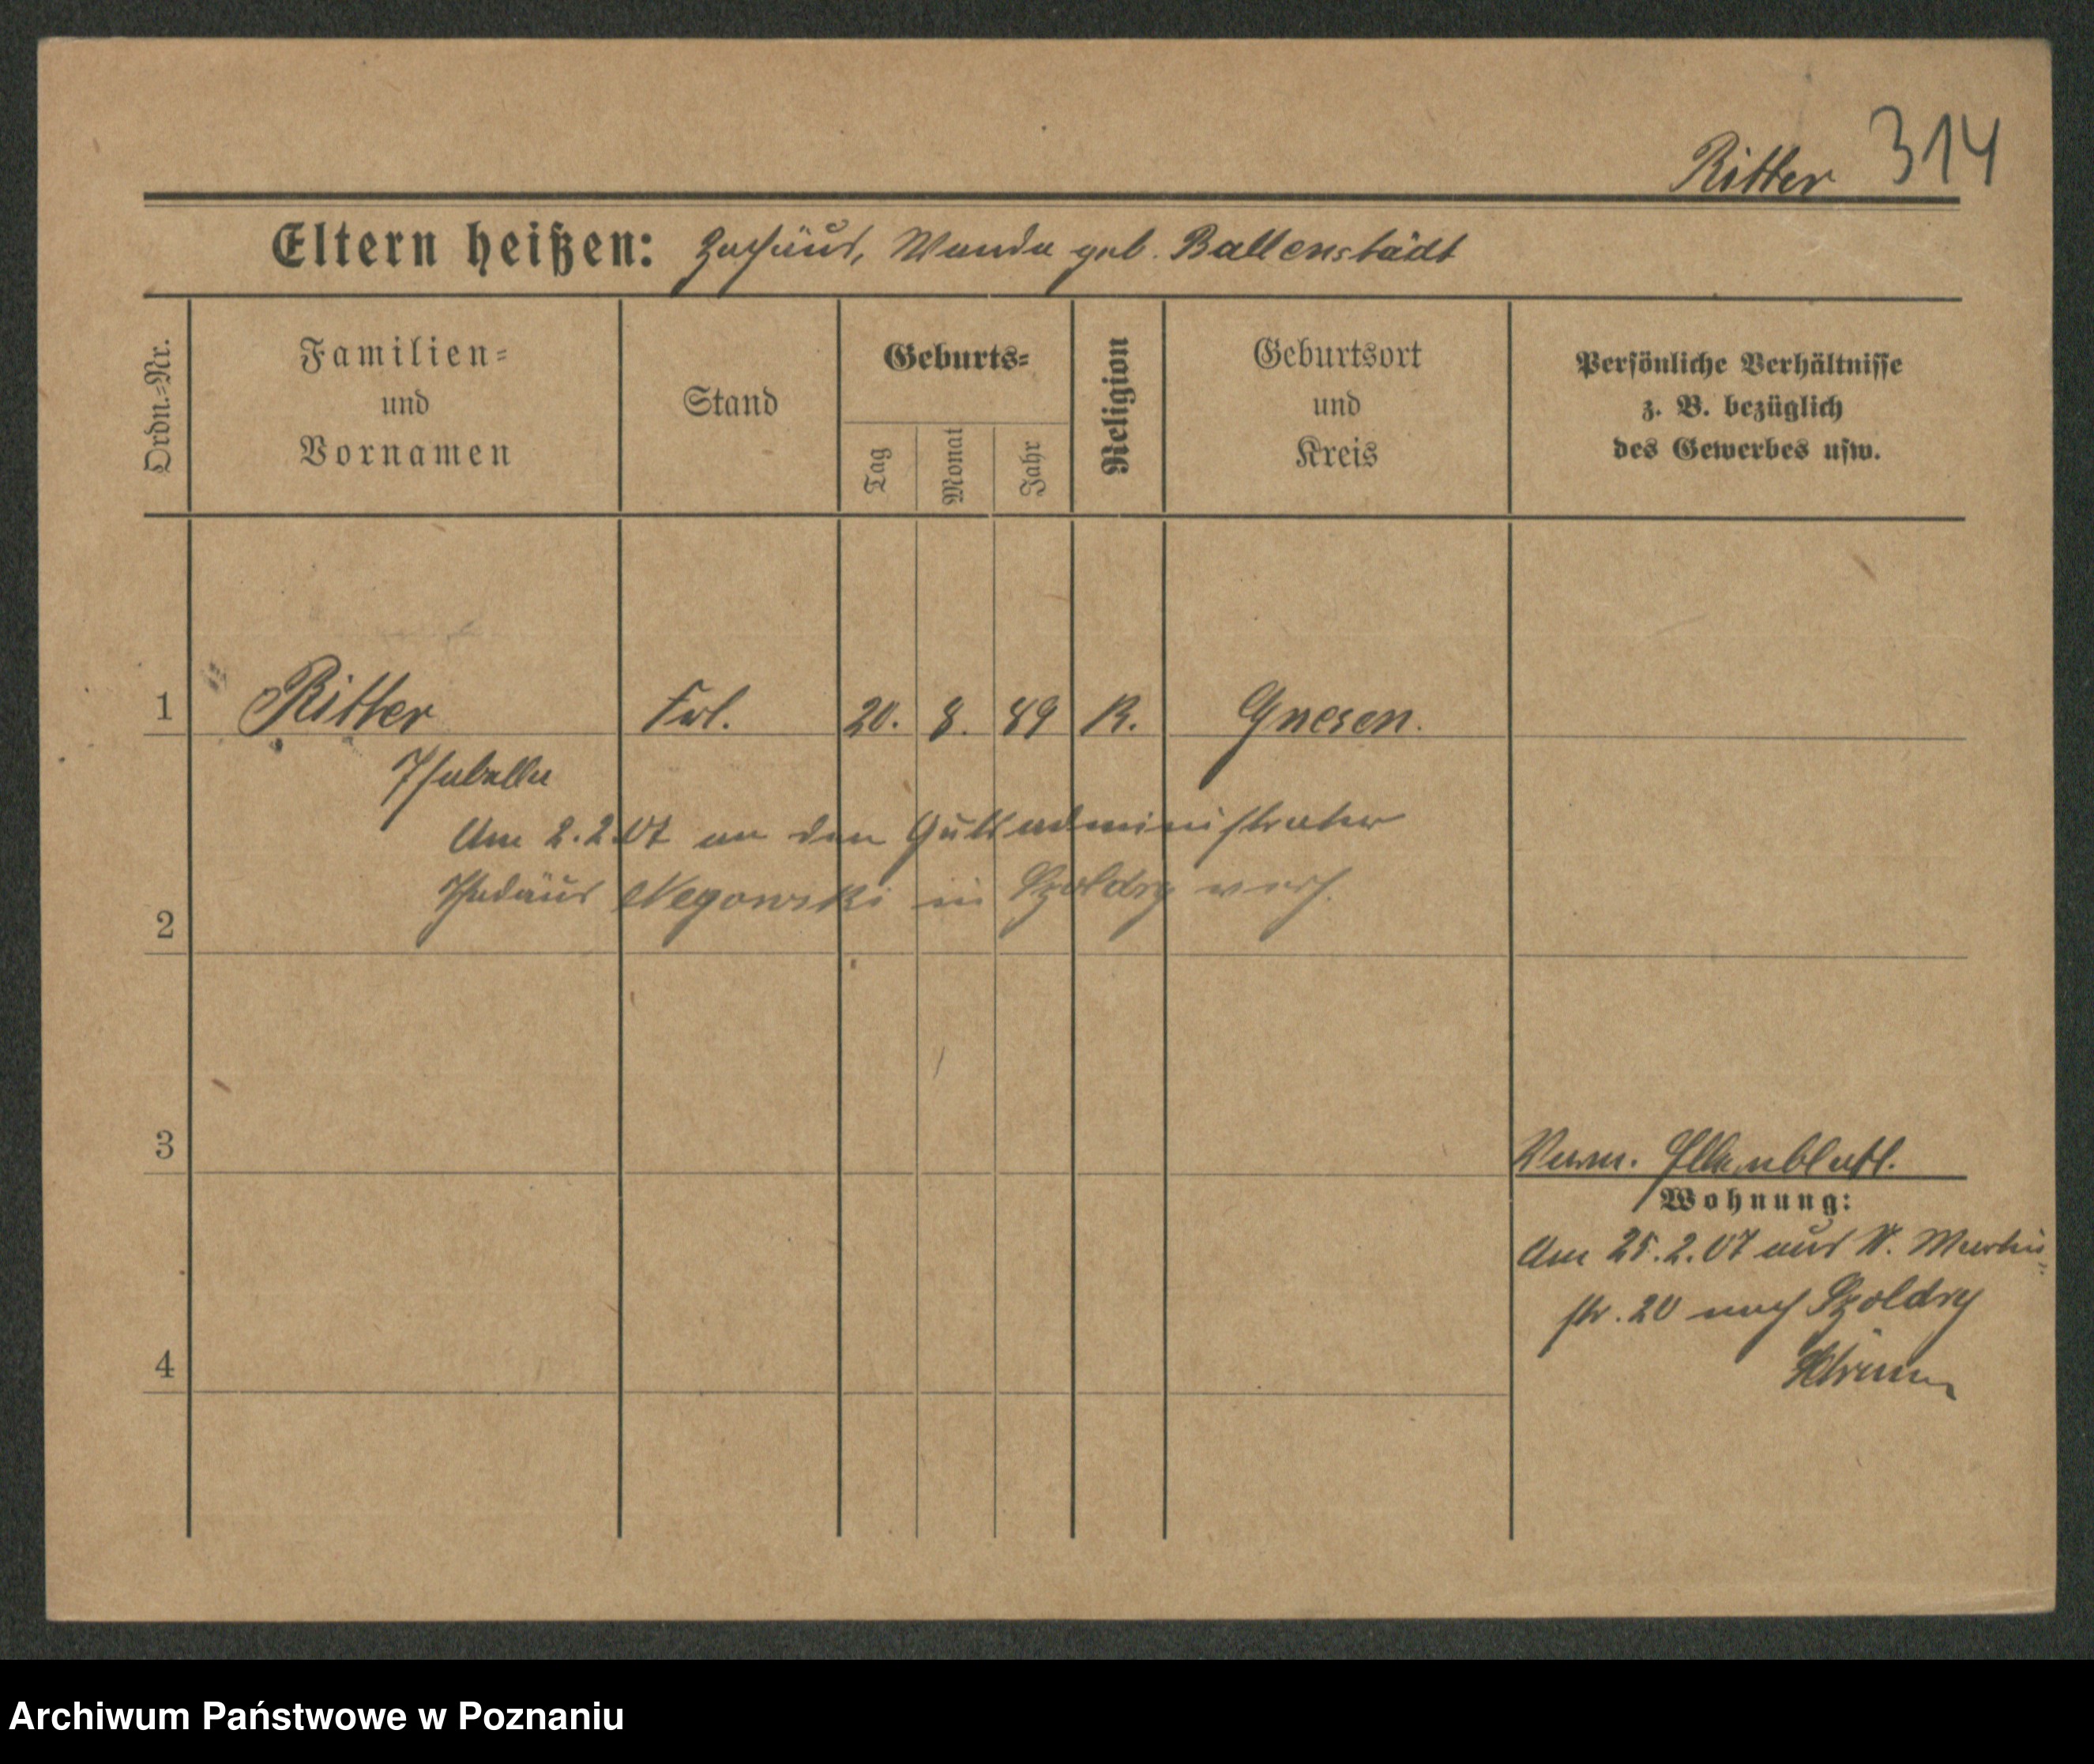 Ritter 314
Eltern heißen: Zachäus, Wanda geb. Ballenstädt
Ordn.=Nr.
Familien=
und
Vornamen
Stand
Geburts=
Tag
Monat
Jahr
Religion
Geburtsort
und
Kreis
Persönliche Verhältnisse
z. B. bezüglich
des Gewerbes usw.
1 Ritter Frl. 20. 8. 89 K. Gnesen.
Isabella
Am 2.2.07 an den Gutsadministrator
Thadäus Negowski in Szoldry verh.
2
3
Wohnung:
Am 25.2.07 aus St. Martin=
str. 20 nach Szoldry
Schrimm
4
Archiwum Państwowe w Poznaniu